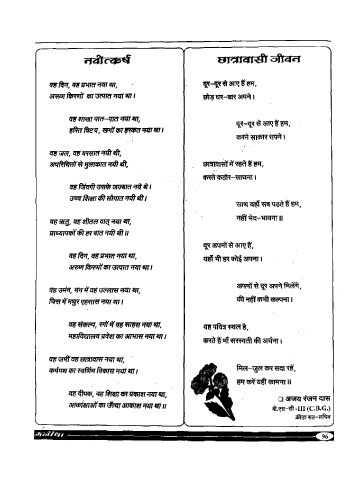 नवोत्कर्ष
वह दिन, वह प्रभात नया था,
अरूण किरणों का उत्पात नया था।
वह शाखा पात-पात नया था,
हरित विटप, खगों का हरकत नया था।
वह जल, वह बरसात नयी थी,
अपरिचितों से मुलाकात नयी थी,
वह जिंदगी उसके जज्बात नये थे।
उच्च शिक्षा की सोगात नयी थी।
वह ऋतु, वह शीतल वात् नया था,
प्राध्यापकों की हर बात नयी थी॥
वह दिन, वह प्रभात नया था,
अरुण किरणों का उत्पात नया था।
वह उमंग, मंग में वह उल्लास नया था,
चित्त में मधुर एहसास नया था।
वह संकल्प, रगों में वह साहस नया था,
महाविद्यालय प्रवेश का आभास नया था।
वह जमीं वह छात्रावास नया था,
कर्मपथ का स्वर्णिम विकास नया था।
वह दीपक, वह शिक्षा का प्रकाश नया था,
आकांक्षाओं का ऊँचा आकाश नया था॥
छात्रावासी जीवन
दूर-दूर से आए हैं हम,
छोड़ घर-बार अपने।
दूर-दूर से आए हैं हम,
करने साकार सपने।
छात्रावासों में रहते हैं हम,
करते कठोर-साधना।
साथ यहाँ सब पढ़ते हैं हम,
नहीं भेद-भावना॥
दूर अपनों से आए हैं,
यहाँ भी हर कोई अपना।
अपनों से दूर अपने मिलेंगे,
की नहीं कभी कल्पना।
वह पवित्र स्थल है,
करते हैं माँ सरस्वती की अर्चना।
मिल-जुल कर सदा रहें,
हम करें यही कामना॥
अजय रंजन दास
बी.एस-सी-III (C.B.G.)
क्रीड़ा सह-सचिव
96